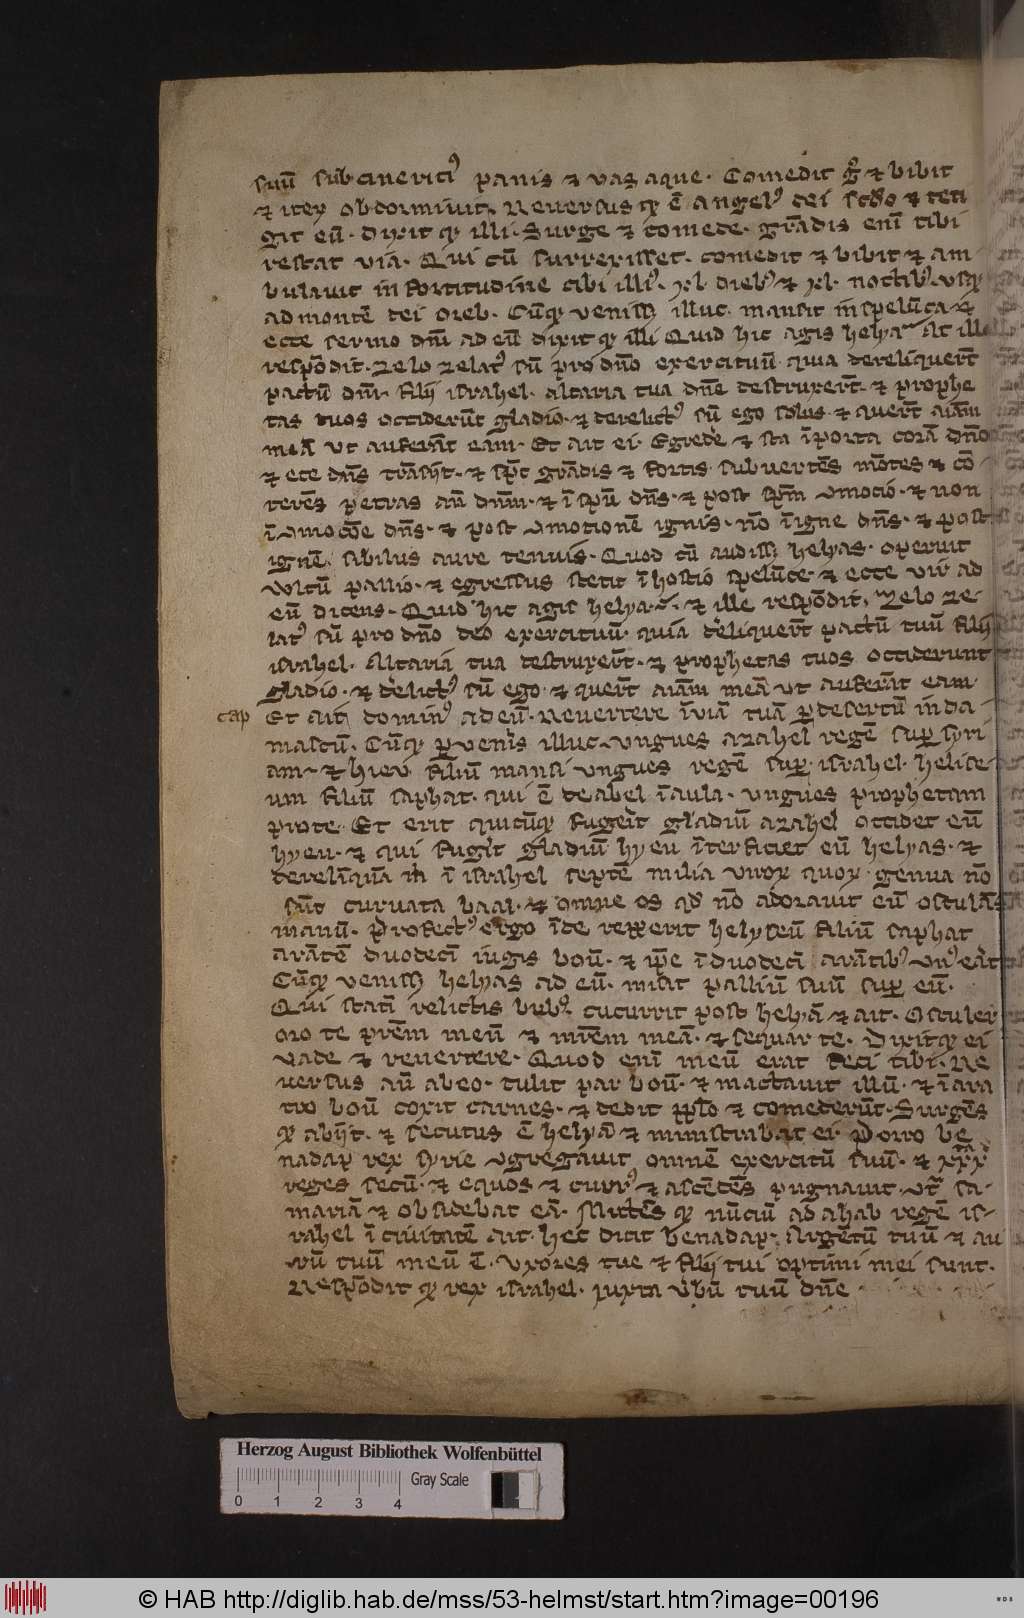 suū subcineriti⁹ panis ⁊ vas aque. Comedit gͦ ⁊ bibit
⁊ itex obdormiuit. Reuersus qꝫ ē angel⁹ dei scdo ⁊ teti
git eū. Dixit qꝫ illi. Surge ⁊ comede. grādis enī tibi
restat uia. Qui cū surrexisset. comedit ⁊ bibit ⁊ am
bulauit in fortitudine cibi illi⁹. xl. dieb⁹ ⁊ xl. noctib⁹. usqꝫ
ad montē dei oreb. Cūqꝫ venissꝫ illuc. mansit in spelūca. ⁊
ecce sermo dnī ad eū dixit qꝫ illi Quid hic agis helya At ille
respōdit. Zelo zelat⁹ sū pro dño exercituū. quia dereliquerūt
pactū dnī. filii israhel. altaria tua dnē destruxerūt. ⁊ prophe
tas tuos occiderūt gladio. ⁊ derelict⁹ sū ego solus. ⁊ querūt aīam
meā ut auferāt eam. Et ait ei. Egrede ⁊ sta ī porta corā dño
⁊ ecce dns trāsiit. ⁊ spc grādis ⁊ fortis subuertēs mōtes ⁊ cō-
terēs petras an̄ dnm. ⁊ ī spū dns. ⁊ post spm ꝯmocio. ⁊ non
ī ꝯmocōe dns. ⁊ post ꝯmotionē ignis. nō ī igne dns. ⁊ post
ignē sibilus aure tenuis. Quod cū audissꝫ helyas. operuit
vltū pallio. ⁊ egressus stetit ī hostio spelūce. ⁊ ecce uir ad
eū dicens. Quid hic agis helya. ⁊ ille respōdit. Zelo ze-
lat⁹ sū pro dño deo exercituū. quia deliquerūt pactū tuū filii
israhel. Altaria tua destruxerūt. ⁊ prophetas tuos occiderunt
gladio. ⁊ delict⁹ sū ego. ⁊ querūt aīam meā ut auferāt eam.
cap Et ait domin⁹ ad eū. Reuertere ī viā tuā ꝑ desertū in da
mascū. Cūqꝫ ꝑueneris illuc. ungues azahel regē suꝑ syri
am. ⁊ hieu filiū mansi ungues regē suꝑ israhel. helise
um filiū saphat. qui ē de abel ī aula. ungues prophetam
pro te. Et erit quicūqꝫ fugerit gladiū azahel occidet eū
hyeu. ⁊ qui fugit gladiū hyeu īterficiet eū helyas. ⁊
derelīquā m ī israhel septē milia virox quox genua nō
sūt curuata baal. ⁊ omne os qd nō adorauit eū osculās
manū. Profect⁹ ergo īde repperit helyseū filiū saphat
arātē duodeci iugis boū. ⁊ ipe ī duodeci arātib⁹ un⁹ erat
Cūqꝫ venissꝫ helyas ad eū. misit palliū suū suꝑ eū.
Qui stati relictis bub⁹. cucurrit post helyā ⁊ ait. Osculer
oro te prēm meū ⁊ mrēm meā. ⁊ sequar te. Dixitqꝫ ei
vade ⁊ reuertere. Quod enī meū erat feci tibi. Re
uersus aū ab eo. tulit par boū. ⁊ mactauit illū. ⁊ ī ara
tro boū coxit carnes. ⁊ dedit pplo ⁊ comederūt. Surgēs
qꝫ abiit. ⁊ secutus ē helyā ⁊ ministrabat ei. Porro be
nadap rex syrie ꝯgregauit omnē exercitū suū. ⁊ xxx
reges secū. ⁊ equos ⁊ curr⁹ ⁊ ascēdēs pugnauit. ꝯtra sa-
mariā ⁊ obsidebat eā. Mictēs qꝫ nūciū ad ahab regē is-
rahel ī ciuitatē ait. hec dicit benadap. Argētū tuū ⁊ au
rū tuū meū ē. Uxores tue ⁊ filii tui optimi mei sunt.
Respōdit qꝫ rex israhel. iuxta ubū tuū dnē
Herzog August Bibliothek Wolfenbüttel
Gray Scale
0 1 2 3 4
© HAB http://diglib.hab.de/mss/53-helmst/start.htm?image=00196